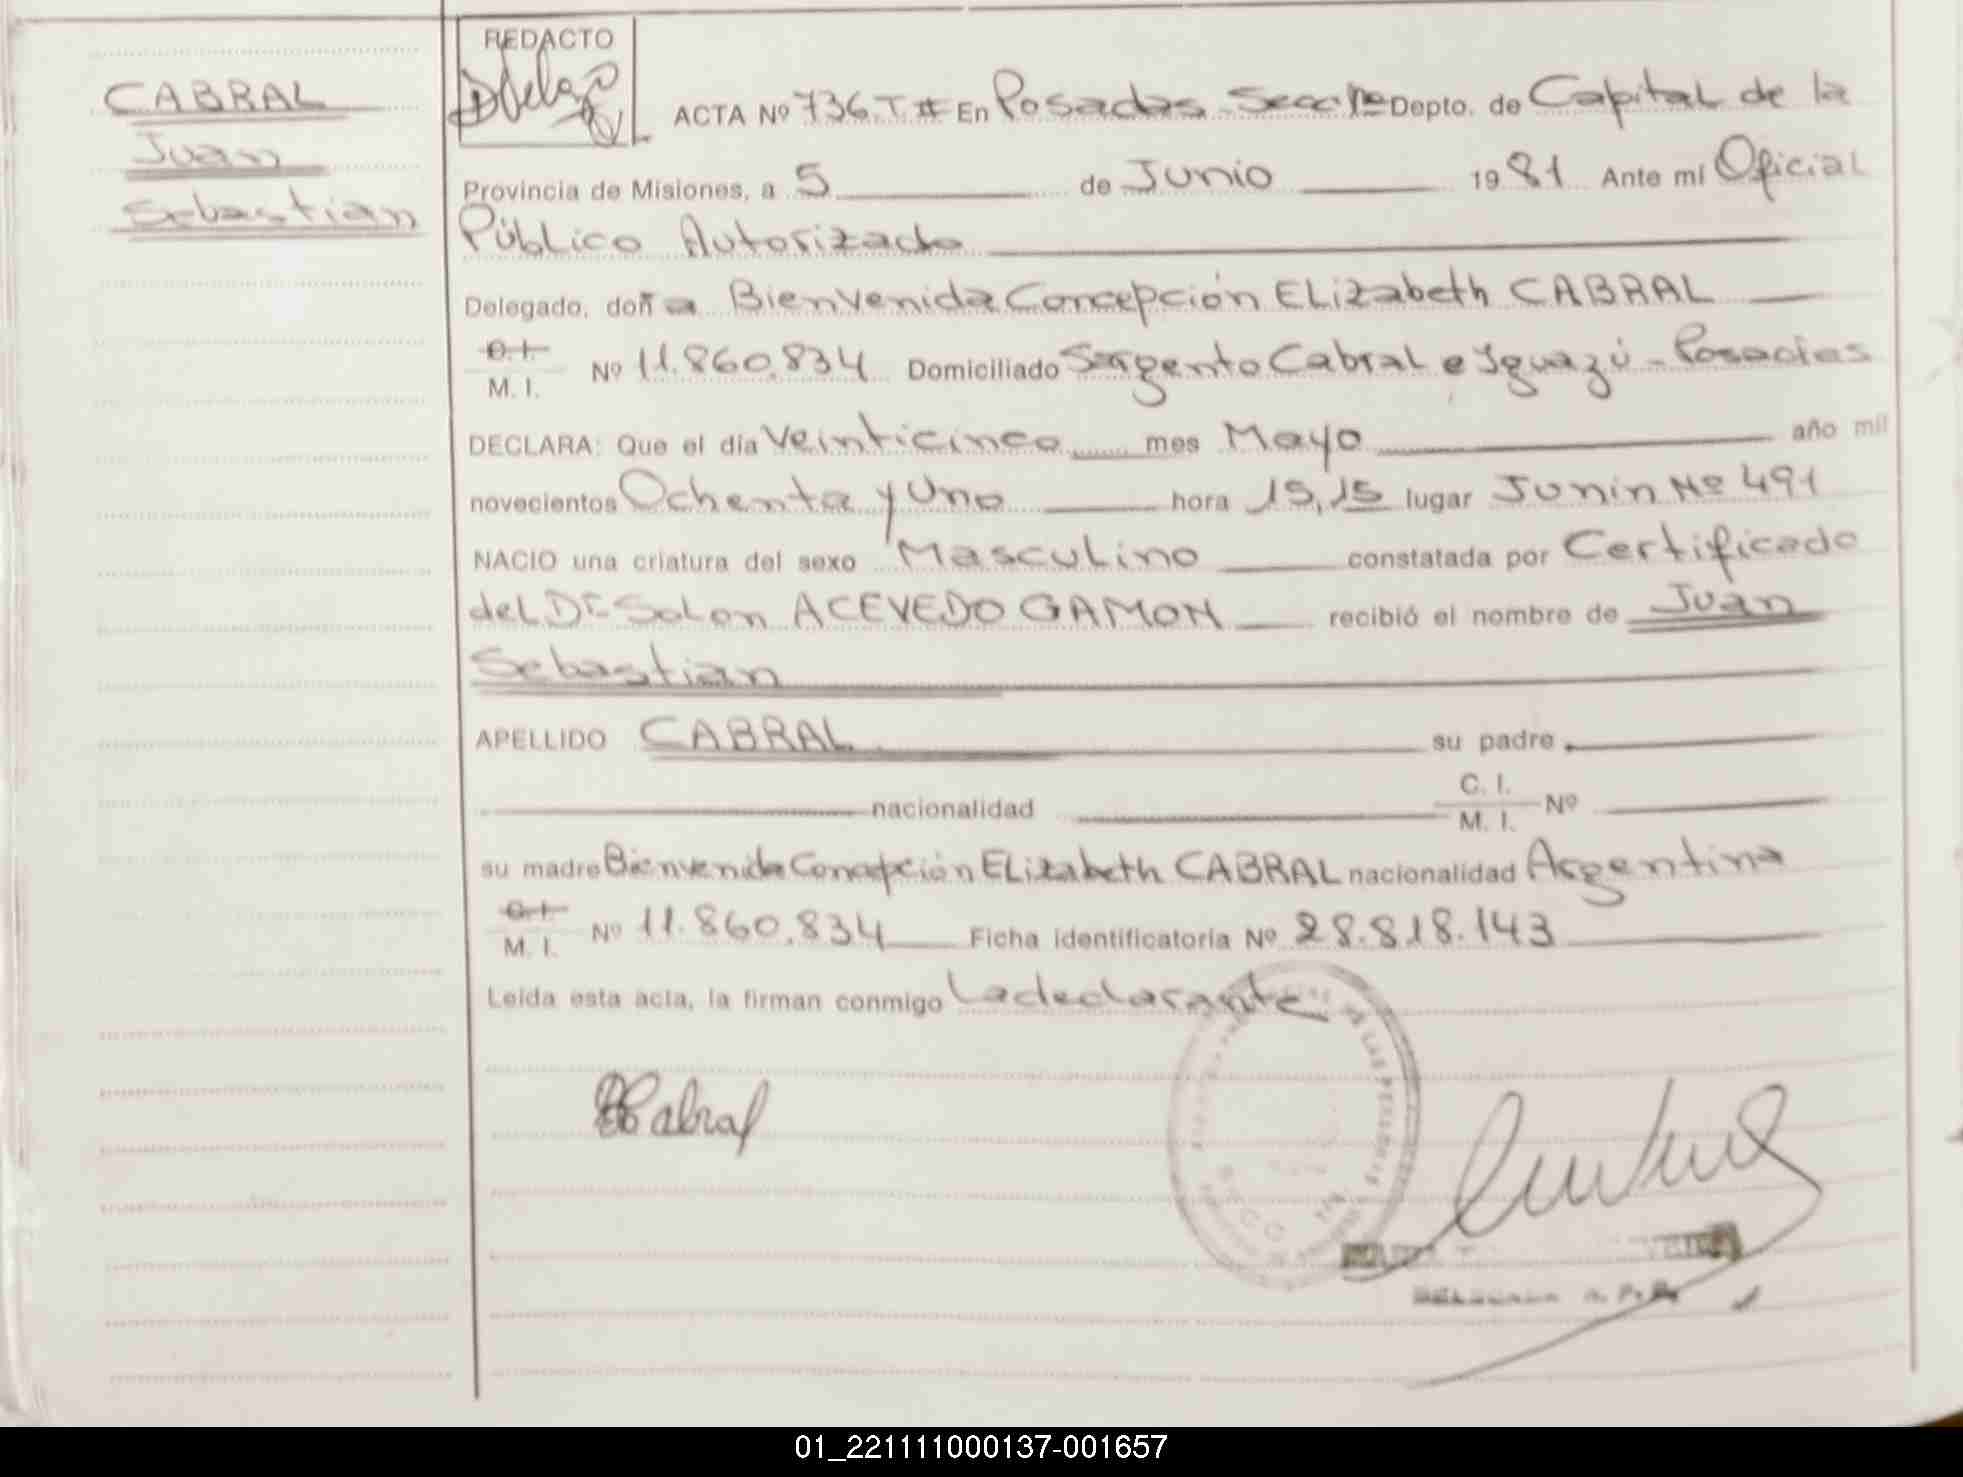 CABRAL
Juan
Sebastian
REDACTO
ACTA Nº 736. T. En Posadas Secc 1ª Depto. de Capital de la
Provincia de Misiones, a 5 de Junio 1981 Ante mí Oficial
Público Autorizado
Delegado, doña Bienvenida Concepción ELizabeth CABRAL
C. I.
M. I. Nº 11.860.834 Domiciliado Sargento Cabral e Iguazú - Posadas
DECLARA: Que el día Veinticinco mes Mayo año mil
novecientos Ochenta y Uno hora 15,15 lugar Junin Nº 491
NACIO una criatura del sexo Masculino constatada por Certificado
del Dr. Solon ACEVEDO GAMON recibió el nombre de Juan
Sebastian
APELLIDO CABRAL su padre
nacionalidad C. I.
M. I. Nº
su madre Bienvenida Concepción ELizabeth CABRAL nacionalidad Argentina
C. I.
M. I. Nº 11.860.834 Ficha identificatoria Nº 28.818.143
Leída esta acta, la firman conmigo La declarante
Cabral
DE LAS PERSONAS
01_221111000137-001657